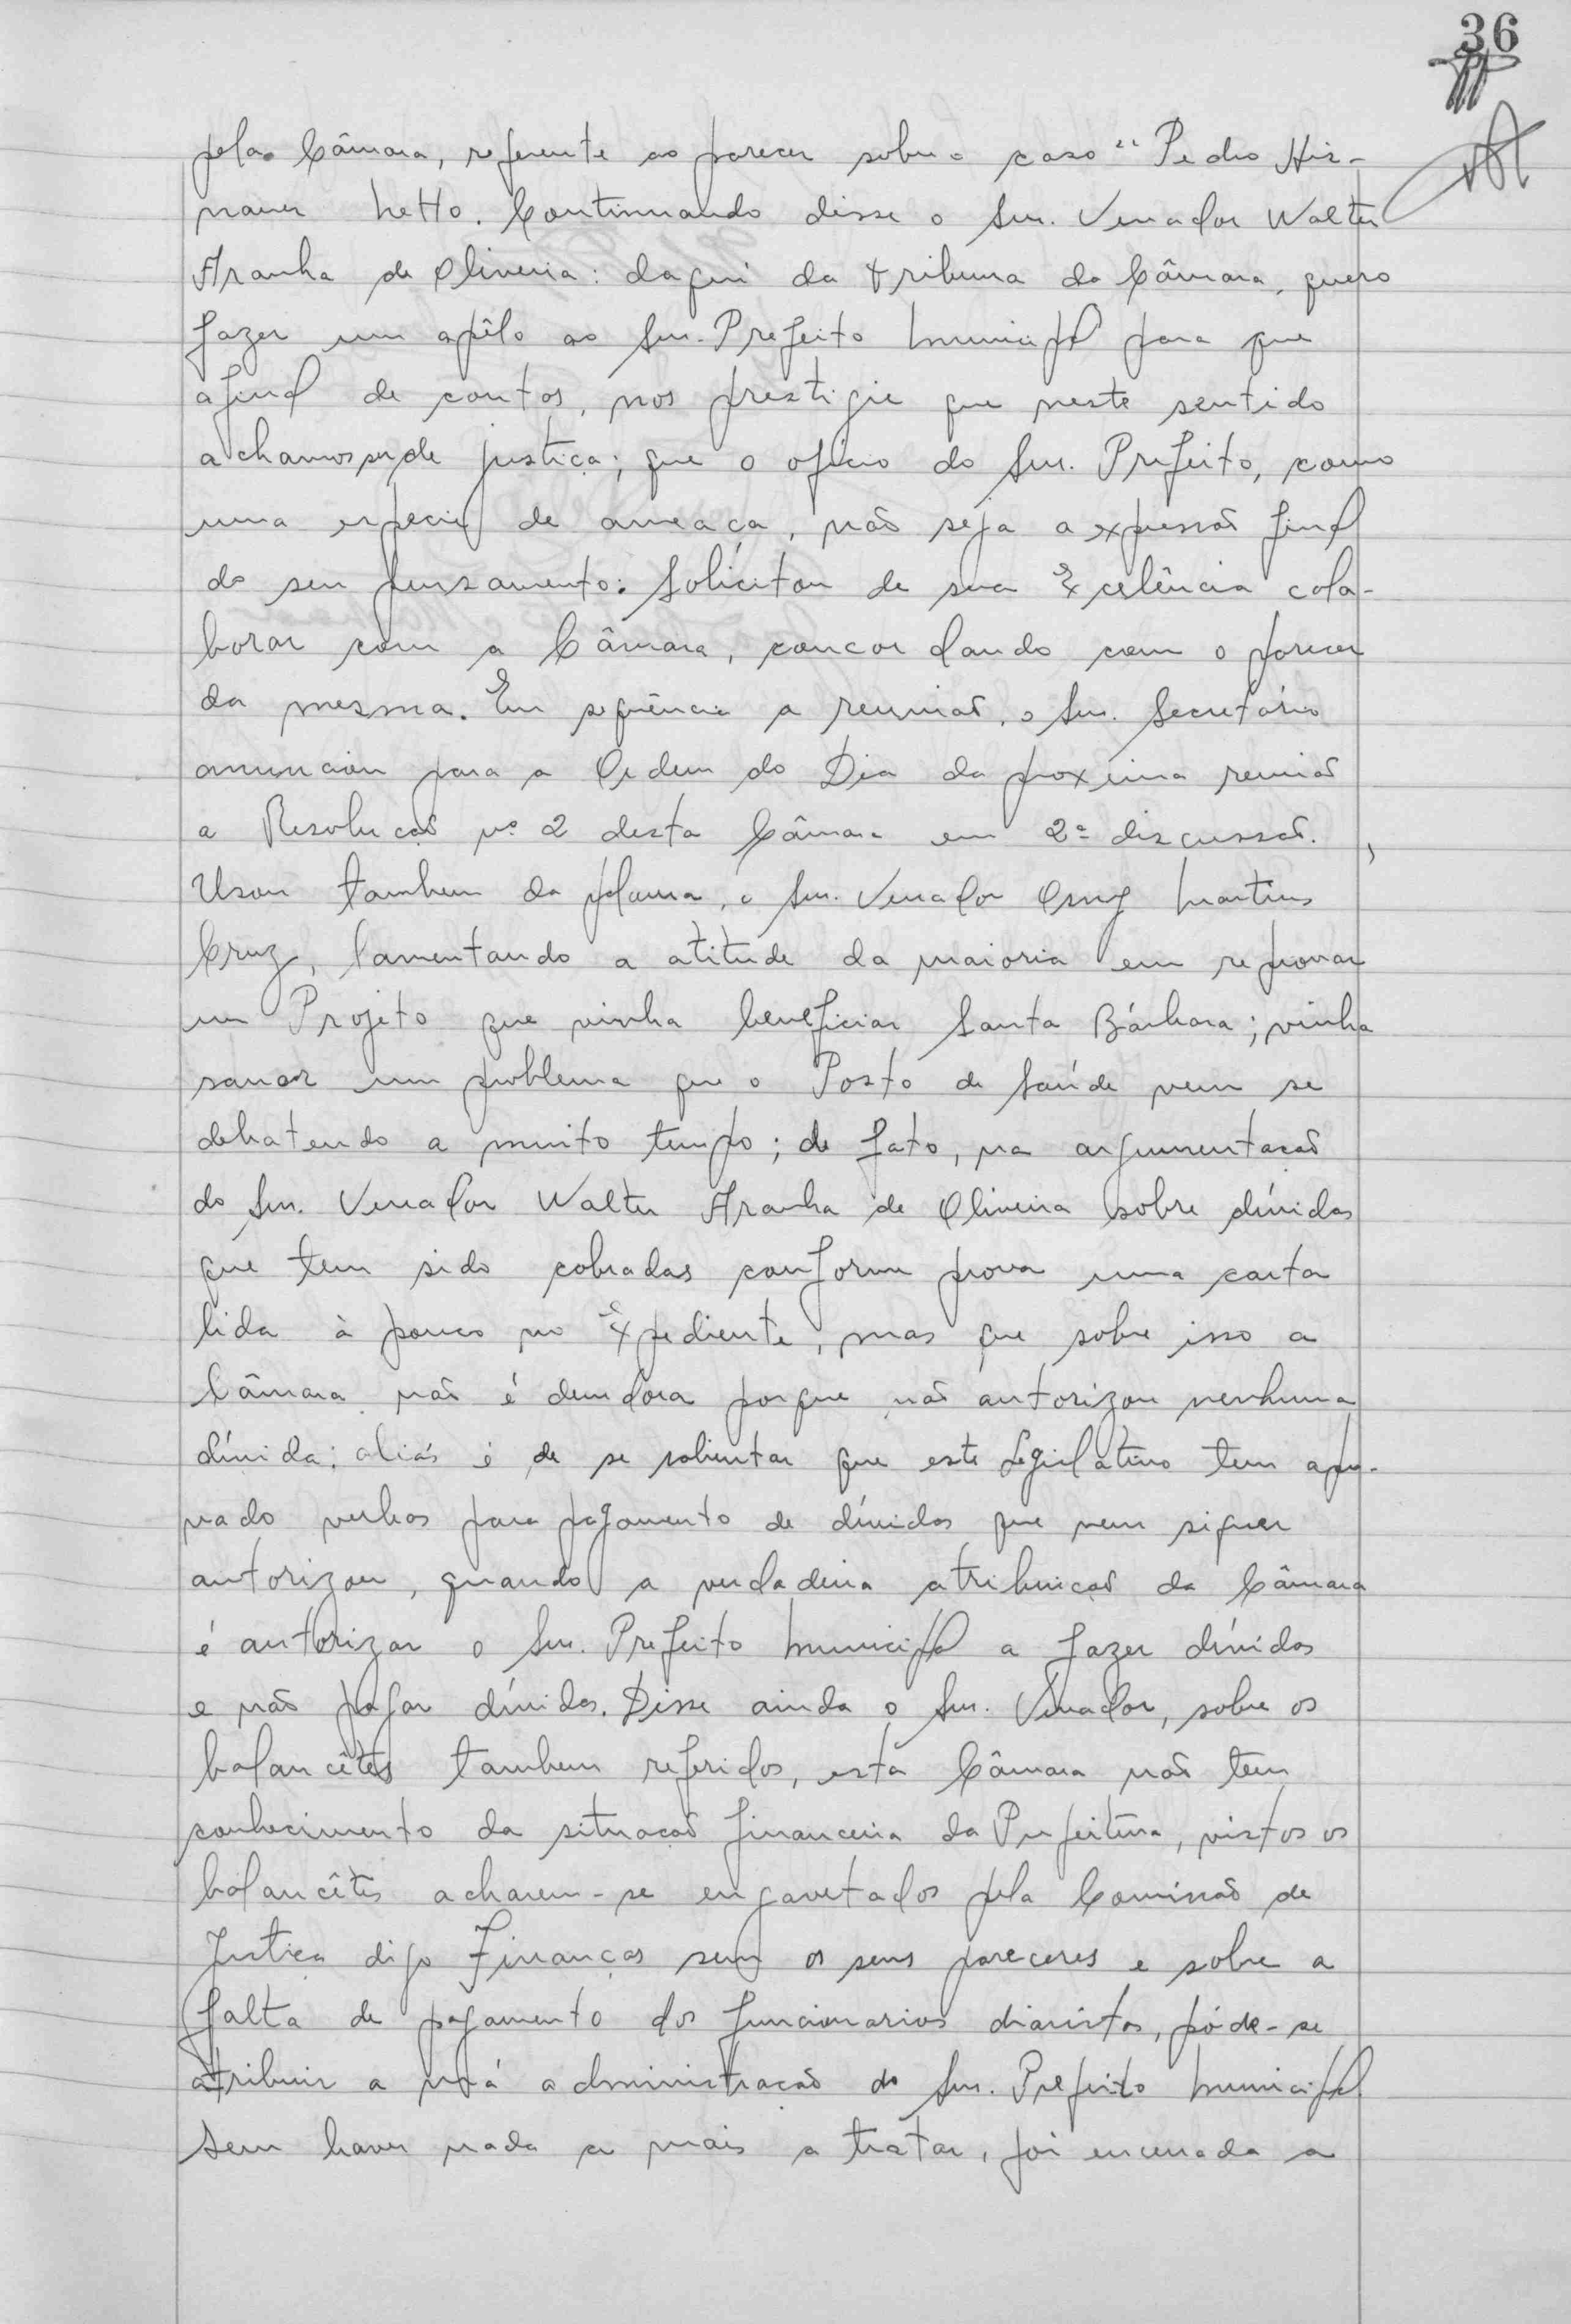 36
pela Câmara, referente ao parecer sobre o caso "Pedro His-
naver Netto. Continuando disse o Snr. Vereador Walter
Aranha de Oliveira: daqui da tribuna da Câmara, quero
fazer um apêlo ao Snr. Prefeito Municipal para que
afinal de contas, nos prestigie que neste sentido
achamos ser de justiça; que o ofício do Snr. Prefeito, como
uma especie de ameaça, não seja a expressão final
do seu pensamento: Solicitou de sua Excelência cola-
borar com a Câmara, concordando com o parecer
da mesma. Em sequência a reunião, o Snr. Secretário
anunciou para a Ordem do Dia da proxima reunião
a Resolução nº 2 desta Câmara em 2ª discussão.
Usou tambem da palavra, o Snr. Vereador Osny Martins
Cruz, lamentando a atitude da maioria em reprovar
um Projeto que vinha beneficiar Santa Bárbara; vinha
sanar um problema que o Posto de Saúde vem se
debatendo a muito tempo; de fato, na argumentação
do Snr. Vereador Walter Aranha de Oliveira sobre dívidas
que tem sido cobradas conforme prova uma carta
lida à pouco no Expediente, mas que sobre isso a
Câmara não é devedora porque não autorizou nenhuma
dívida; aliás é de se salientar que este Legislativo tem apro-
vado verbas para pagamento de dívidas que nem siquer
autorizou, quando a verdadeira atribuição da Câmara
é autorizar o Snr. Prefeito Municipal a fazer dívidas
e não pagar dívidas. Disse ainda o Snr. Vereador, sobre os
balancêtes tambem referidos, esta Câmara não tem
conhecimento da situação financeira da Prefeitura, vistos os
balancêtes acharem-se engavetados pela Comissão de
Justiça digo Finanças sem os seus pareceres e sobre a
falta de pagamento dos funcionarios diaristas, póde-se
atribuir a má administração do Snr. Prefeito Municipal
Sem haver nada a mais a tratar, foi encerrada a